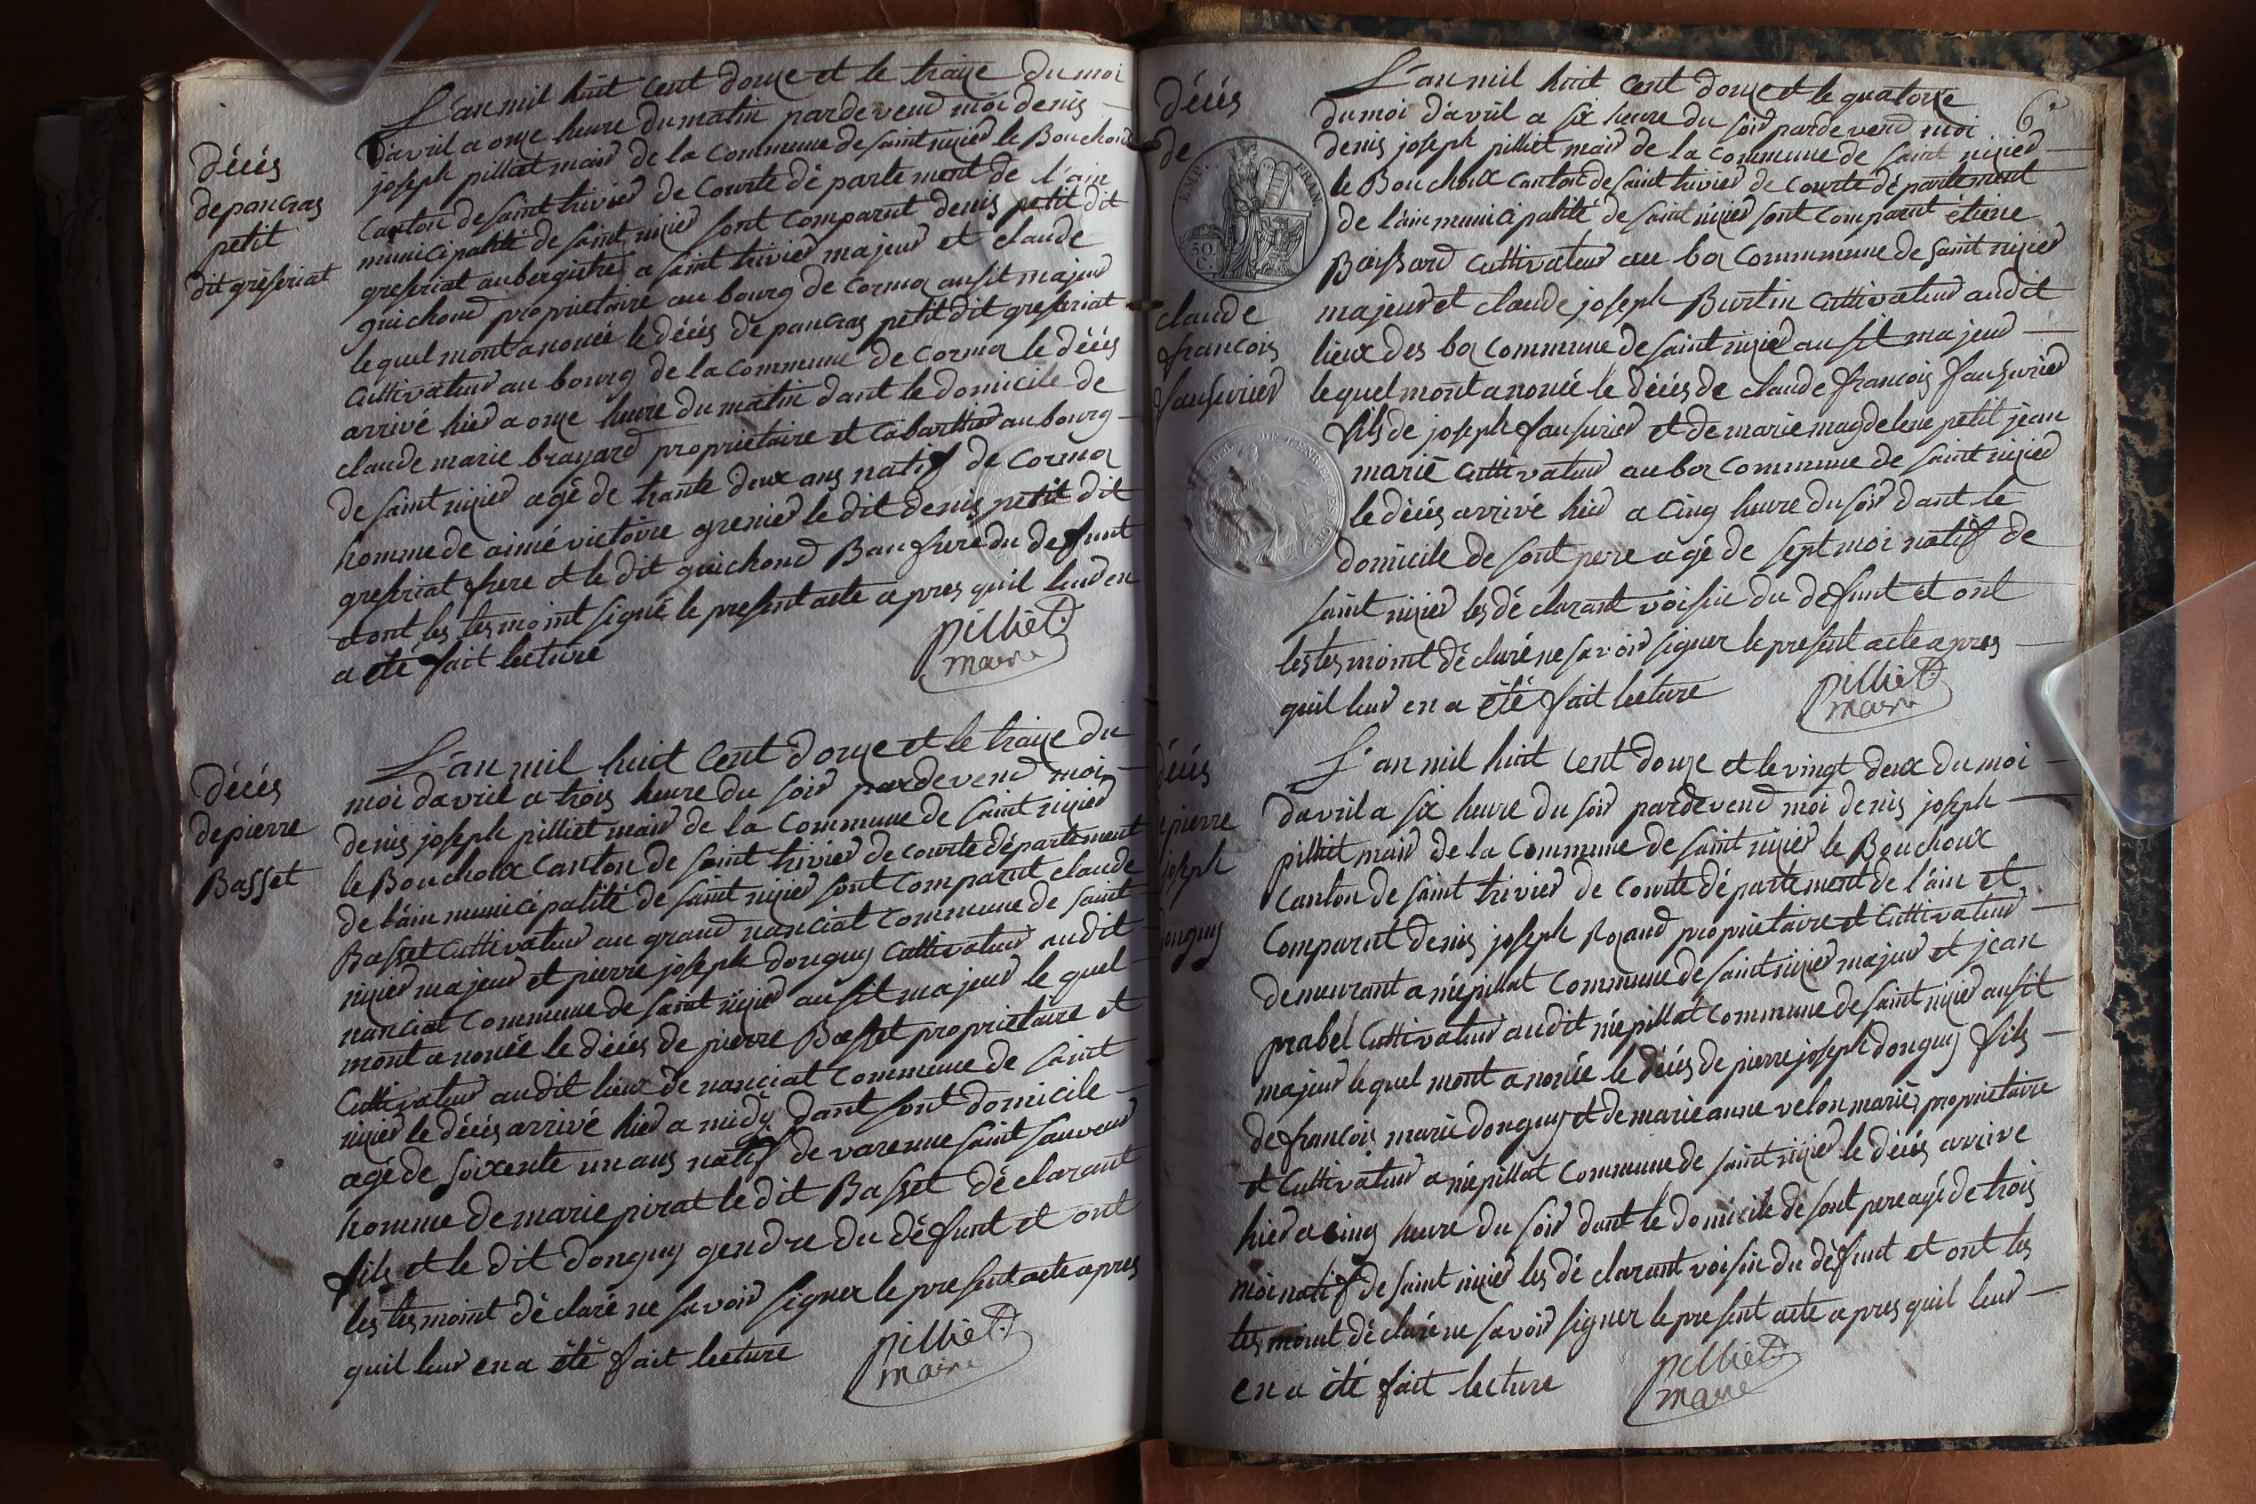 décés
de pancras
petit
dit gréferiat
L'an mil huit cent douze et le traize du moi
d'avril a onze heure du matin pardevend moi denis
joseph pilliat maid de la commune de saint nizied le Bouchoux
Canton de saint trivied de Courte dé partement de l'ain
municipalité de saint nizied sont comparut denis petit dit
greferiat aubergiste a saint trivied majeur et claude
guichond proprietaire au bourg de Cormoz aussit majeur
lequel mont anoncé le décés de pancras petit dit greferiat
Cultivateur au bourg de la commune de Cormoz le décés
arrivé hied a onze heure du matin dant le domicile de
claude marie brayard proprietaire et Cabarttied au bourg
de saint nizied agé de trante deux ans natif de Cormoz
homme de aimé victoire grenied le dit denis petit dit
greferiat frere et le dit guichond Baufrere du defunt
et ont les tesmoint signé le present acte a pres quil leud en
a été fait lecture
pilliet
maire
décés
de pierre
Basset
L'an mil huit cent douze et le traize du
moi davril a trois heure du soid pardevend moi
denis joseph pilliet maid de la commune de saint nizied
le Bouchoux Canton de saint trivied de Courte département
de l'ain municipalité de saint nizied sont comparut claude
Basset Cultivateur au grand nanciat commune de saint
nizied majeur et pierre joseph donguy Cultivateur audit
nanciat commune de saint nizied aussit majeur le quel
mont anoncée le décés de pierre Basset proprietaire et
Cultivateur audit lieux de nanciat commune de saint
nizied le décés arrivé hied a midy dant sont domicile
agé de soixente un ans natif de varenne saint sauveur
homme de marie pirat le dit Basset déclarant
fils et le dit donguy gendre du défunt et ont
les tesmoint déclaré ne savoid signer le present acte apres
quil leur en a été fait lecture
pilliet
maire
6e
décés
de
EMP. FRAN.
50
C.
claude
francois
faussurier
L'an mil huit cent douze et le quatorze
du moi d'avril a six heure du soid pardevend moi
denis joseph pilliet maid de la commune de saint nizied
le Bouchoux Canton de saint trivied de Courte département
de l'ain municipalité de saint nizied sont comparut étiene
Boissard Cultivateur au boz commune de saint nizied
majeur et claude joseph Burtin Cultivateur audit
lieux des boz commune de saint nizied aussit majeud
lequel mont anoncé le décés de claude francois faussuried
fils de joseph faussuried et de marie magdelene petit jean
marié Cultivateur au boz commune de saint nizied
le décés arrivé hied a cinq heure du soid dant le
domicile de sont pere agé de sept moi natif de
saint nizied les dé clarant voisin du defunt et ont
les tesmoint déclaré ne savoid signer le present acte apres
quil leur en a été fait lecture
pilliet
maire
décés
de pierre
joseph
donguy
L'an mil huit cent douze et le vingt deux du moi
davril a six heure du soid pardevend moi denis joseph
pilliet maid de la commune de saint nizied le Bouchoux
Canton de saint trivied de Courte département de l'ain et
Comparut denis joseph Rozand proprietaire et Cultivateur
demeurant a népillat commune de saint nizied majeur et jean
prabel Cultivateur audit népillat commune de saint nizied aussit
majeur lequel mont anoncée le décés de pierre joseph donguy fils
de francois marie donguy et de marie anne velon mariés proprietaire
et Cultivateur a népillat commune de saint nizied le décés arrivé
hied a cinq heure du soid dant le domicile de sont pere agé de trois
moi natif de saint nizied les dé clarant voisin du défunt et ont les
tesmoint déclaré ne savoid signer le present acte apres quil leur
en a été fait lecture
pilliet
maire